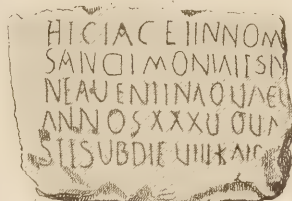 HICIACEIINNOM
SANCIMONIALISIN
NEAUENIINAQUAEU
ANNOSXXXUQUI
STISUBDIEUIIIKAIC